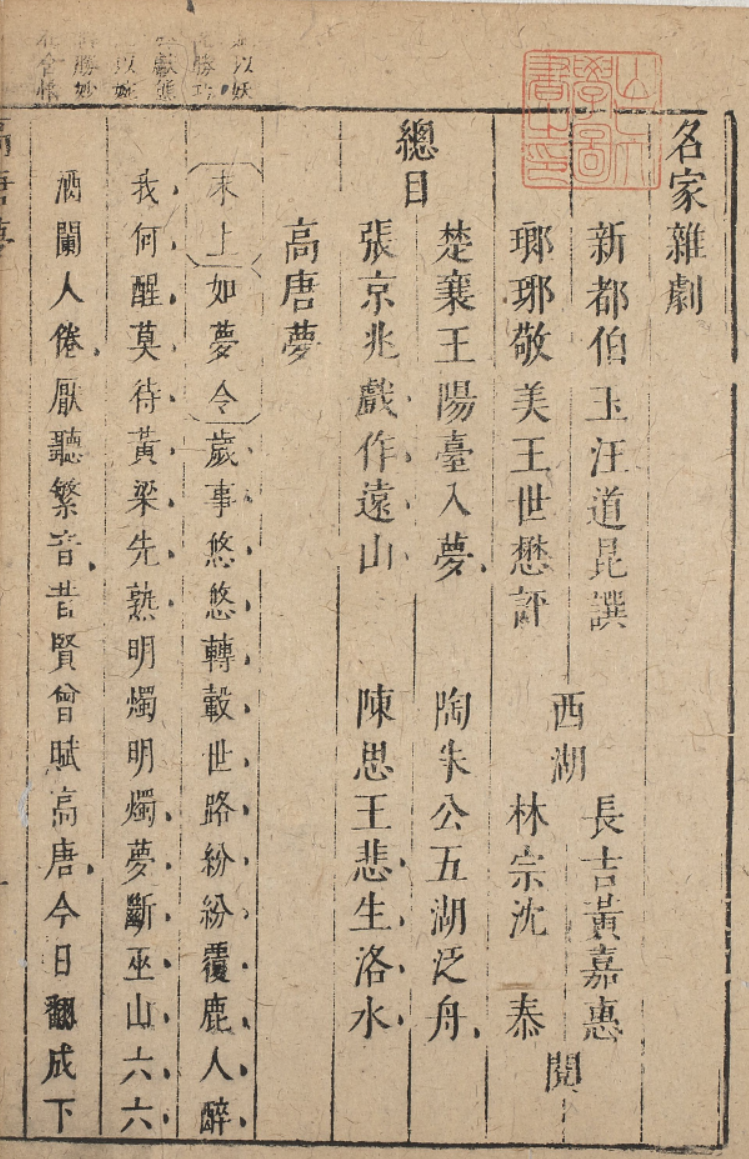 名家雜劇
新都伯玉汪道昆譔
瑯琊敬美王世懋評
西湖
長吉黃嘉惠
林宗沈泰
閱
總目
楚襄王陽臺入夢 陶朱公五湖泛舟
張京兆戲作遠山 陳思王悲生洛水
高唐夢
末上如夢令歲事悠悠轉轂世路紛紛覆鹿人醉
我何醒莫待黃梁先熟明燭明燭夢斷巫山六六
酒闌人倦厭聽繁音昔賢曾賦高唐今日翻成下
高唐夢